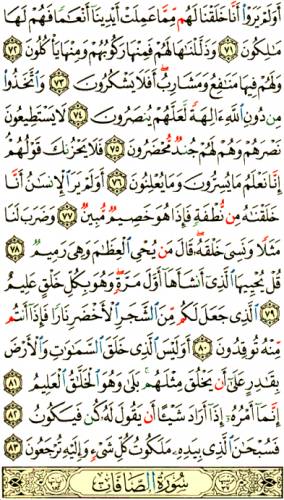 أَوَلَمْ يَرَوْا۟ أَنَّا خَلَقْنَا لَهُم مِّمَّا عَمِلَتْ أَيْدِينَآ أَنْعَـٰمًا فَهُمْ لَهَا
مَـٰلِكُونَ ٧١ وَذَلَّلْنَـٰهَا لَهُمْ فَمِنْهَا رَكُوبُهُمْ وَمِنْهَا يَأْكُلُونَ ٧٢
وَلَهُمْ فِيهَا مَنَـٰفِعُ وَمَشَارِبُ ۖ أَفَلَا يَشْكُرُونَ ٧٣ وَٱتَّخَذُوا۟
مِن دُونِ ٱللَّهِ ءَالِهَةً لَّعَلَّهُمْ يُنصَرُونَ ٧٤ لَا يَسْتَطِيعُونَ
نَصْرَهُمْ وَهُمْ لَهُمْ جُندٌ مُّحْضَرُونَ ٧٥ فَلَا يَحْزُنكَ قَوْلُهُمْ ۘ
إِنَّا نَعْلَمُ مَا يُسِرُّونَ وَمَا يُعْلِنُونَ ٧٦ أَوَلَمْ يَرَ ٱلْإِنسَـٰنُ أَنَّا
خَلَقْنَـٰهُ مِن نُّطْفَةٍ فَإِذَا هُوَ خَصِيمٌ مُّبِينٌ ٧٧ وَضَرَبَ لَنَا
مَثَلًا وَنَسِىَ خَلْقَهُۥ ۖ قَالَ مَن يُحْىِ ٱلْعِظَـٰمَ وَهِىَ رَمِيمٌ ٧٨
قُلْ يُحْيِيهَا ٱلَّذِىٓ أَنشَأَهَآ أَوَّلَ مَرَّةٍ ۖ وَهُوَ بِكُلِّ خَلْقٍ عَلِيمٌ
٧٩ ٱلَّذِى جَعَلَ لَكُم مِّنَ ٱلشَّجَرِ ٱلْأَخْضَرِ نَارًا فَإِذَآ أَنتُم
مِّنْهُ تُوقِدُونَ ٨٠ أَوَلَيْسَ ٱلَّذِى خَلَقَ ٱلسَّمَـٰوَٰتِ وَٱلْأَرْضَ
بِقَـٰدِرٍ عَلَىٰٓ أَن يَخْلُقَ مِثْلَهُم ۚ بَلَىٰ وَهُوَ ٱلْخَلَّـٰقُ ٱلْعَلِيمُ ٨١
إِنَّمَآ أَمْرُهُۥٓ إِذَآ أَرَادَ شَيْـًٔا أَن يَقُولَ لَهُۥ كُن فَيَكُونُ ٨٢
فَسُبْحَـٰنَ ٱلَّذِى بِيَدِهِۦ مَلَكُوتُ كُلِّ شَىْءٍ وَإِلَيْهِ تُرْجَعُونَ ٨٣
سُورَةُ ٱلصَّافَّاتِ